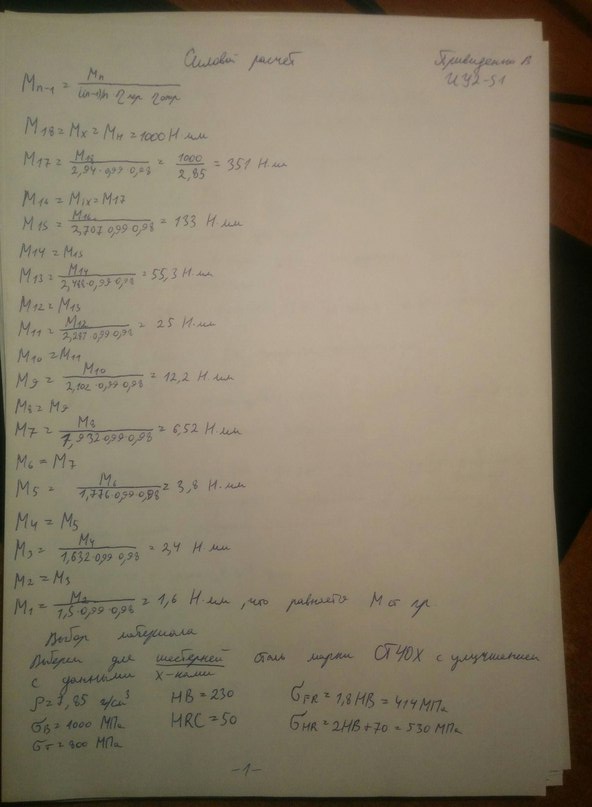 Силовой расчёт
Привиденцев В
ИУ2-51
Mn-1 = Mn / (i(n-1)n · ηпер · ηопр)
M18 = Mx = MH = 1000 Н·мм
M17 = M18 / (2,94·0,99·0,98) = 1000 / 2,85 = 351 Н·мм
M16 = MIX = M17
M15 = M16 / (2,707·0,99·0,98) = 133 Н·мм
M14 = M15
M13 = M14 / (2,488·0,99·0,98) = 55,3 Н·мм
M12 = M13
M11 = M12 / (2,287·0,99·0,98) = 25 Н·мм
M10 = M11
M9 = M10 / (2,102·0,99·0,98) = 12,2 Н·мм
M8 = M9
M7 = M8 / (1,932·0,99·0,98) = 6,52 Н·мм
M6 = M7
M5 = M6 / (1,776·0,99·0,98) = 3,8 Н·мм
M4 = M5
M3 = M4 / (1,632·0,99·0,98) = 2,4 Н·мм
M2 = M3
M1 = M2 / (1,5·0,99·0,98) = 1,6 Н·мм, что равняется М от гр.
Выбор материала
Выберем для шестерней сталь марки СТ40Х с улучшением
с данными х-ками
ρ = 7,85 г/см³ HB = 230 σFR = 1,8HB = 414 МПа
σв = 1000 МПа HRC = 50 σHR = 2HB+70 = 530 МПа
σт = 800 МПа
-1-